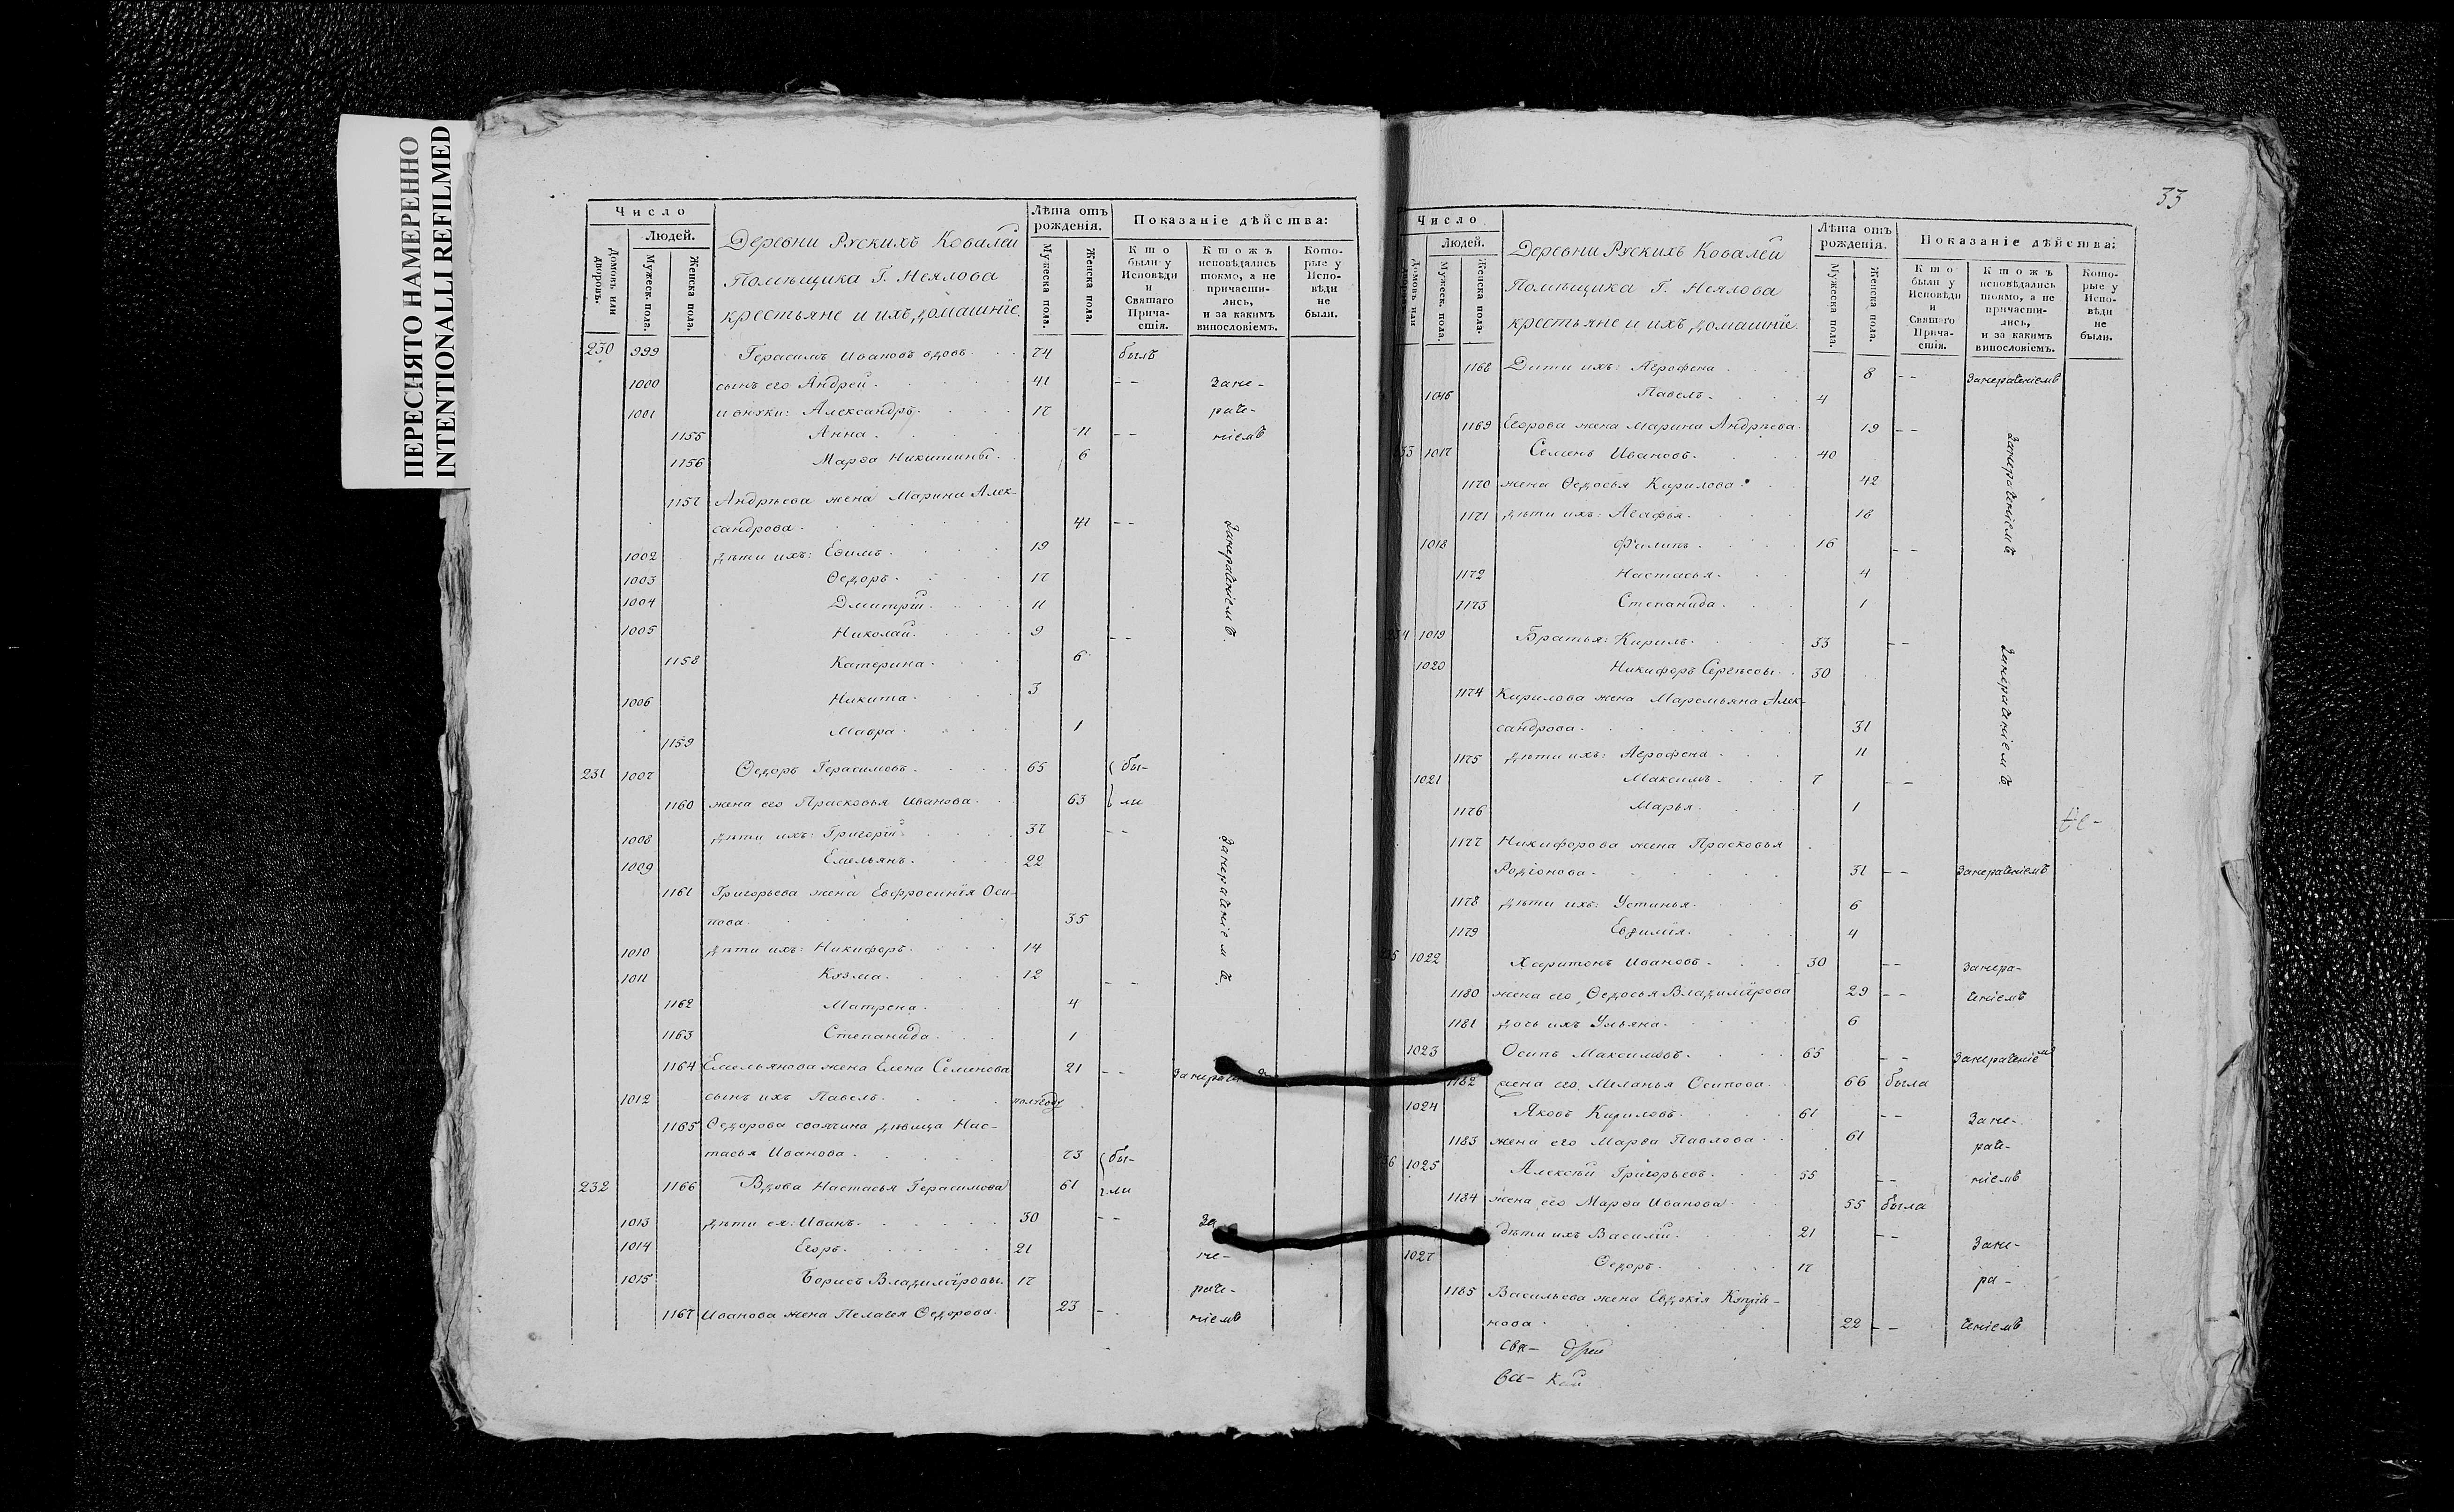 ПЕРЕСНЯТО НАМЕРЕННО
INTENTIONALLI REFILMED
Число
Людей.
Домовъ или дворовъ.
Мужеск. пола.
Женска пола.
Деревни Рускихъ Ковалей
Помѣщика Г. Неялова
крестьяне и ихъ домашнїе.
Лѣта отъ рождения.
Мужеска пола.
Женска пола.
Показанiе дѣйства:
Кто были у Исповѣди и Святаго Прича-стiя.
Ктожъ исповѣдались токмо, а не причасти-лись, и за какимъ винословiемъ.
Кото-рые у Испо-вѣди не были.
230 999 Герасимъ Ивановъ вдовъ 74 былъ
1000 сынъ его Андрей 41 -- Зане-
1001 и внуки: Александръ 17 раче-
1155 Анна 11 -- нiемъ
1156 Марѳа Никитины 6
1157 Андрѣева жена Марина Алек-
сандрова 41 --
1002 дѣти ихъ: Еѳимъ 19
1003 Ѳедоръ 17
1004 Дмитрїй 11
1005 Николай 9 --
1158 Катерина 6
1006 Никита 3
1159 Мавра 1
Занераченiемъ.
231 1007 Ѳедоръ Герасимовъ 65 бы-
1160 жена его Прасковья Иванова 63 ли
1008 дѣти ихъ: Григорїй 37 --
1009 Емельянъ 22
1161 Григорьева жена Евфросинїя Оси-
пова 35
1010 дѣти ихъ: Никифоръ 14
1011 Козма 12 --
1162 Матрена 4
1163 Степанида 1
Занераченiемъ.
1164 Емельянова жена Елена Семенова 21 --
1012 сынъ ихъ Павелъ полгода
1165 Ѳедорова своячина дѣвица Нас-
тасья Иванова 73 бы-
232 1166 Вдова Настасья Герасимова 61 ли
1013 дѣти ея: Иванъ 30 -- За
1014 Егоръ 21 не-
1015 Борисъ Владимїровы 17 раче-
1167 Иванова жена Пелагея Ѳедорова 23 -- нiемъ
33
Число
Людей.
Домовъ или дворовъ.
Мужеск. пола.
Женска пола.
Деревни Рускихъ Ковалей
Помѣщика Г. Неялова
крестьяне и ихъ домашнїе.
Лѣта отъ рождения.
Мужеска пола.
Женска пола.
Показанiе дѣйства:
Кто были у Исповѣди и Святаго Прича-стiя.
Ктожъ исповѣдались токмо, а не причасти-лись, и за какимъ винословiемъ.
Кото-рые у Испо-вѣди не были.
1168 Дѣти ихъ: Агрофена 8 -- Занераченiемъ
1016 Павелъ 4
1169 Егорова жена Марина Андрѣева 19 --
33 1017 Семенъ Ивановъ 40
1170 жена Ѳедосья Кирилова 42
1171 дѣти ихъ: Агафья 18
1018 Филипъ 16 --
1172 Настасья 4
1173 Степанида 1
Занераченiемъ
234 1019 Братья: Кирилъ 33 --
1020 Никифоръ Сергѣевы 30
1174 Кирилова жена Маремьяна Алек-
сандрова 31
1175 дѣти ихъ: Агрофена 11
1021 Максимъ 7 --
1176 Марья 1
Занераченiемъ
1177 Никифорова жена Прасковья
Родїонова 31 -- Занераченiемъ
1178 дѣти ихъ: Устинья 6
1179 Евдимїя 4
35 1022 Харитонъ Ивановъ 30 -- Занера-
1180 жена его Ѳедосья Владимїрова 29 -- ченiемъ
1181 дочь ихъ Ульяна 6
1023 Осипъ Максимовъ 65 -- Занераченiемъ
1182 жена его Меланья Осипова 66 была
1024 Яковъ Кириловъ 61 -- Зане-
1183 жена его Марѳа Павлова 61 раче-
36 1025 Алексѣй Григорьевъ 55 -- нiемъ
1184 жена его Марѳа Иванова 55 была
дѣти ихъ Василїй 21 -- Зане-
1027 Ѳедоръ 17 ра-
1185 Васильева жена Евдокїя Купрїя-
нова 22 -- ченiемъ